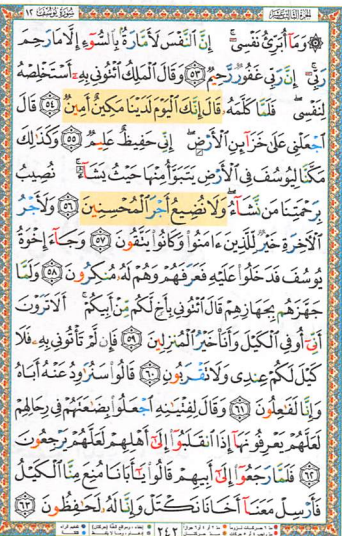 الجزء الثالث عشر سورة يوسف ١٢
۞ وَمَآ أُبَرِّئُ نَفْسِىٓ ۚ إِنَّ ٱلنَّفْسَ لَأَمَّارَةٌۢ بِٱلسُّوٓءِ إِلَّا مَا رَحِمَ
رَبِّىٓ ۚ إِنَّ رَبِّى غَفُورٌ رَّحِيمٌ ﴿٥٣﴾ وَقَالَ ٱلْمَلِكُ ٱئْتُونِى بِهِۦٓ أَسْتَخْلِصْهُ
لِنَفْسِى ۖ فَلَمَّا كَلَّمَهُۥ قَالَ إِنَّكَ ٱلْيَوْمَ لَدَيْنَا مَكِينٌ أَمِينٌ ﴿٥٤﴾ قَالَ
ٱجْعَلْنِى عَلَىٰ خَزَآئِنِ ٱلْأَرْضِ ۖ إِنِّى حَفِيظٌ عَلِيمٌ ﴿٥٥﴾ وَكَذَٰلِكَ
مَكَّنَّا لِيُوسُفَ فِى ٱلْأَرْضِ يَتَبَوَّأُ مِنْهَا حَيْثُ يَشَآءُ ۚ نُصِيبُ
بِرَحْمَتِنَا مَن نَّشَآءُ ۖ وَلَا نُضِيعُ أَجْرَ ٱلْمُحْسِنِينَ ﴿٥٦﴾ وَلَأَجْرُ
ٱلْـَٔاخِرَةِ خَيْرٌ لِّلَّذِينَ ءَامَنُوا۟ وَكَانُوا۟ يَتَّقُونَ ﴿٥٧﴾ وَجَآءَ إِخْوَةُ
يُوسُفَ فَدَخَلُوا۟ عَلَيْهِ فَعَرَفَهُمْ وَهُمْ لَهُۥ مُنكِرُونَ ﴿٥٨﴾ وَلَمَّا
جَهَّزَهُم بِجَهَازِهِمْ قَالَ ٱئْتُونِى بِأَخٍ لَّكُم مِّنْ أَبِيكُمْ ۚ أَلَا تَرَوْنَ
أَنِّىٓ أُوفِى ٱلْكَيْلَ وَأَنَا۠ خَيْرُ ٱلْمُنزِلِينَ ﴿٥٩﴾ فَإِن لَّمْ تَأْتُونِى بِهِۦ فَلَا
كَيْلَ لَكُمْ عِندِى وَلَا تَقْرَبُونِ ﴿٦٠﴾ قَالُوا۟ سَنُرَٰوِدُ عَنْهُ أَبَاهُ
وَإِنَّا لَفَٰعِلُونَ ﴿٦١﴾ وَقَالَ لِفِتْيَٰنِهِ ٱجْعَلُوا۟ بِضَٰعَتَهُمْ فِى رِحَالِهِمْ
لَعَلَّهُمْ يَعْرِفُونَهَآ إِذَا ٱنقَلَبُوٓا۟ إِلَىٰٓ أَهْلِهِمْ لَعَلَّهُمْ يَرْجِعُونَ
﴿٦٢﴾ فَلَمَّا رَجَعُوٓا۟ إِلَىٰٓ أَبِيهِمْ قَالُوا۟ يَٰٓأَبَانَا مُنِعَ مِنَّا ٱلْكَيْلُ
فَأَرْسِلْ مَعَنَآ أَخَانَا نَكْتَلْ وَإِنَّا لَهُۥ لَحَٰفِظُونَ ﴿٦٣﴾
٢٤٢